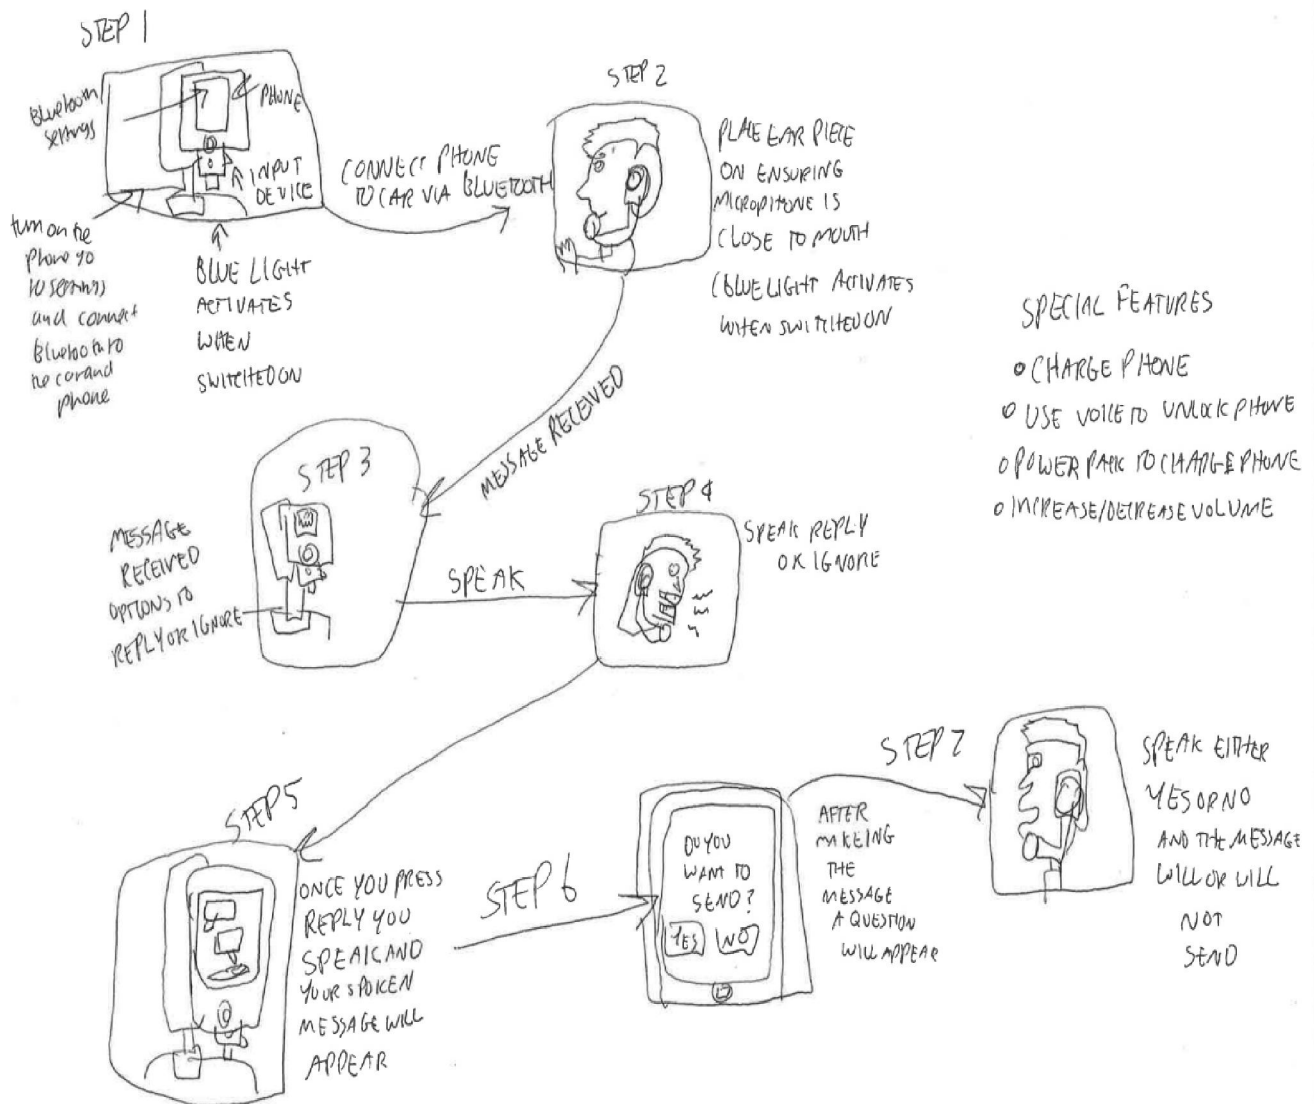 STEP 1
Bluetooth
settings
PHONE
INPUT
DEVICE
turn on the
phone go
to settings
and connect
Bluetooth to
he car and
phone
BLUE LIGHT
ACTIVATES
WHEN
SWITCHED ON
CONNECT PHONE
TO CAR VIA BLUETOOTH
STEP 2
PLACE EAR PIECE
ON ENSURING
MICROPHONE IS
CLOSE TO MOUTH
(BLUE LIGHT ACTIVATES
WHEN SWITCHED ON
MESSAGE RECEIVED
SPECIAL FEATURES
CHARGE PHONE
USE VOICE TO UNLOCK PHONE
POWER PACK TO CHARGE PHONE
INCREASE/DECREASE VOLUME
STEP 3
MESSAGE
RECEIVED
OPTIONS TO
REPLY OR IGNORE
SPEAK
STEP 4
SPEAK REPLY
OR IGNORE
STEP 5
ONCE YOU PRESS
REPLY YOU
SPEAK AND
YOUR SPOKEN
MESSAGE WILL
APPEAR
STEP 6
DO YOU
WANT TO
SEND?
YES NO
AFTER
MAKEING
THE
MESSAGE
A QUESTION
WILL APPEAR
STEP 7
SPEAK EITHER
YES OR NO
AND THE MESSAGE
WILL OR WILL
NOT
SEND